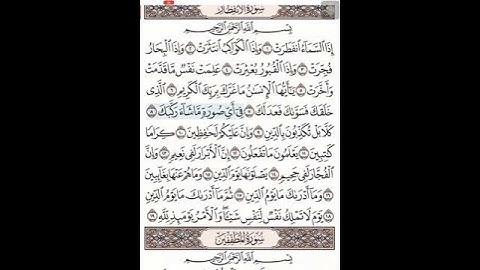 سُورَةُ الانفِطَارِ
بِسْمِ اللَّهِ الرَّحْمَٰنِ الرَّحِيمِ
إِذَا السَّمَاءُ انفَطَرَتْ ١ وَإِذَا الْكَوَاكِبُ انتَثَرَتْ ٢ وَإِذَا الْبِحَارُ
فُجِّرَتْ ٣ وَإِذَا الْقُبُورُ بُعْثِرَتْ ٤ عَلِمَتْ نَفْسٌ مَّا قَدَّمَتْ
وَأَخَّرَتْ ٥ يَٰأَيُّهَا الْإِنسَٰنُ مَا غَرَّكَ بِرَبِّكَ الْكَرِيمِ ٦ الَّذِي
خَلَقَكَ فَسَوَّىٰكَ فَعَدَلَكَ ٧ فِي أَيِّ صُورَةٍ مَّا شَاءَ رَكَّبَكَ ٨
كَلَّا بَلْ تُكَذِّبُونَ بِالدِّينِ ٩ وَإِنَّ عَلَيْكُمْ لَحَٰفِظِينَ ١٠ كِرَامًا
كَٰتِبِينَ ١١ يَعْلَمُونَ مَا تَفْعَلُونَ ١٢ إِنَّ الْأَبْرَارَ لَفِي نَعِيمٍ ١٣ وَإِنَّ
الْفُجَّارَ لَفِي جَحِيمٍ ١٤ يَصْلَوْنَهَا يَوْمَ الدِّينِ ١٥ وَمَا هُمْ عَنْهَا بِغَائِبِينَ
١٦ وَمَا أَدْرَىٰكَ مَا يَوْمُ الدِّينِ ١٧ ثُمَّ مَا أَدْرَىٰكَ مَا يَوْمُ الدِّينِ
١٨ يَوْمَ لَا تَمْلِكُ نَفْسٌ لِّنَفْسٍ شَيْئًا وَالْأَمْرُ يَوْمَئِذٍ لِّلَّهِ ١٩
سُورَةُ المُطَفِّفِينَ
بِسْمِ اللَّهِ الرَّحْمَٰنِ الرَّحِيمِ